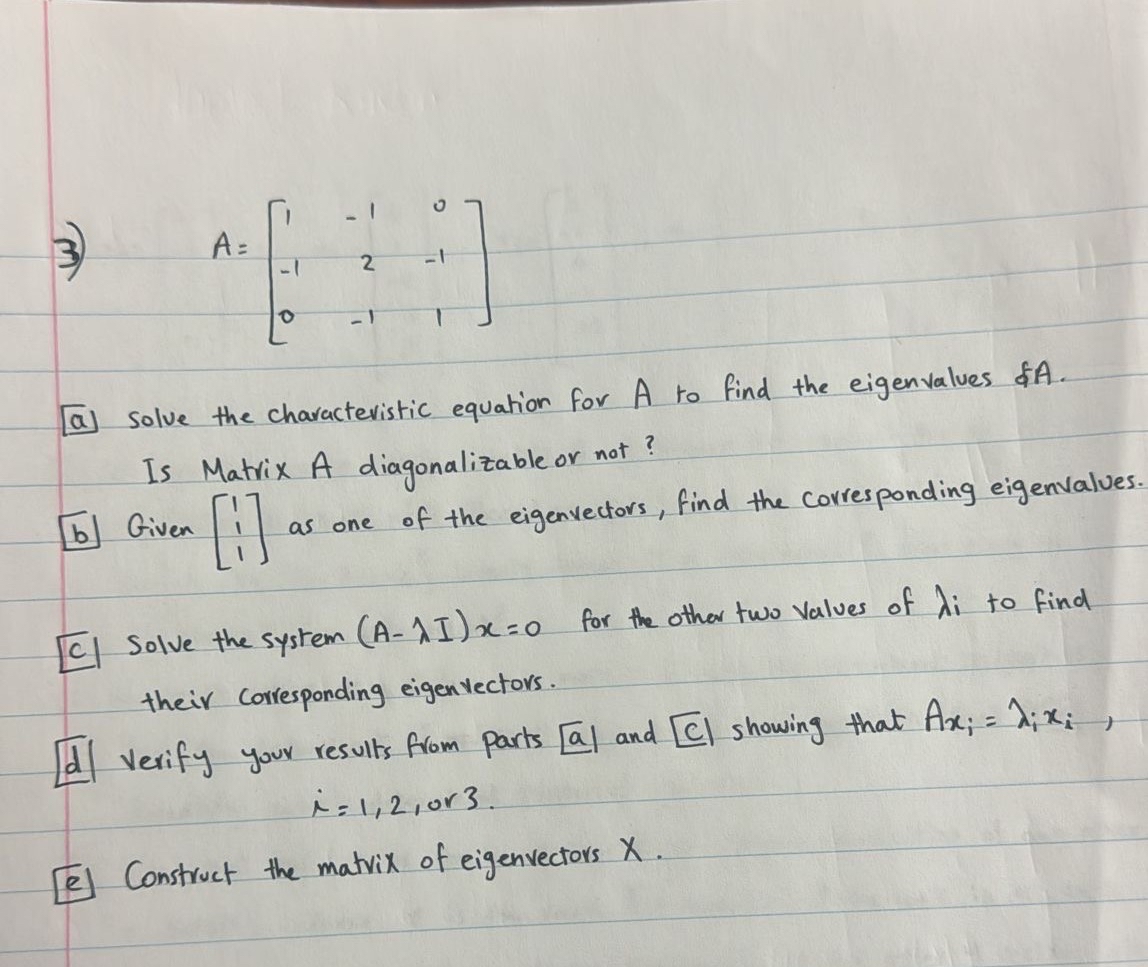 3) A = [ 1 -1 0
-1 2 -1
0 -1 1 ]
[a] Solve the characteristic equation for A to find the eigenvalues of A.
Is Matrix A diagonalizable or not ?
[b] Given [ 1 1 1 ] as one of the eigenvectors, find the corresponding eigenvalues.
[c] Solve the system (A - λI)x = 0 for the other two values of λi to find
their corresponding eigenvectors.
[d] Verify your results from parts [a] and [c] showing that Axi = λixi ,
i = 1, 2, or 3.
[e] Construct the matrix of eigenvectors X .